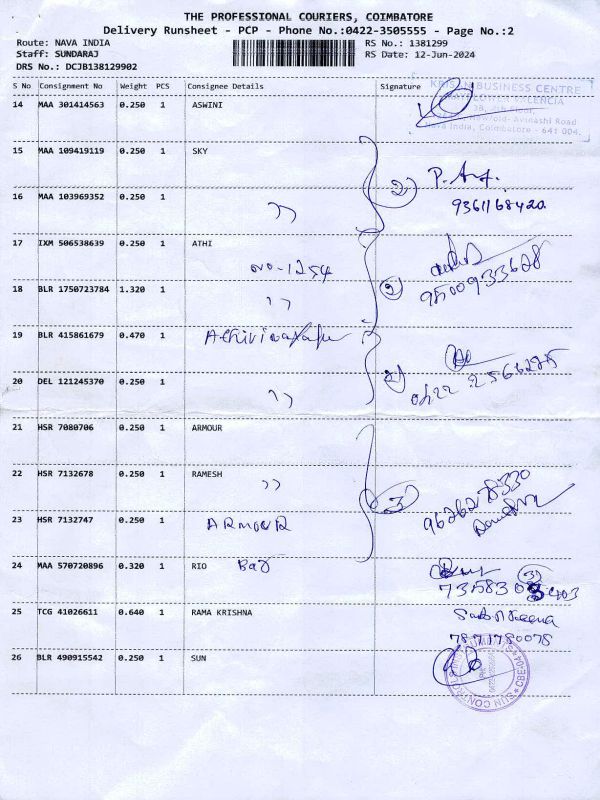 THE PROFESSIONAL COURIERS, COIMBATORE
Delivery Runsheet - PCP - Phone No.:0422-3505555 - Page No.:2
Route: NAVA INDIA
RS No.: 1381299
Staff: SUNDARAJ
RS Date: 12-Jun-2024
DRS No.: DCJB138129902
S No Consignment No Weight PCS Consignee Details Signature
BUSINESS CENTRE
14 MAA 301414563 0.250 1 ASWINI
Avinashi Road
Nava India, Coimbatore - 641 004.
15 MAA 109419119 0.250 1 SKY
2)
16 MAA 103969352 0.250 1
9361168420
17 IXM 506538639 0.250 1 ATHI
NO-1254
18 BLR 1750723784 1.320 1
2)
9500933628
19 BLR 415861679 0.470 1
20 DEL 121245370 0.250 1
2)
0422 2566285
21 HSR 7080706 0.250 1 ARMOUR
22 HSR 7132678 0.250 1 RAMESH
3
9626278330
23 HSR 7132747 0.250 1 ARMOUR
24 MAA 570720896 0.320 1 RIO Bag
25 TCG 41026611 0.640 1 RAMA KRISHNA
7871780078
26 BLR 490915542 0.250 1 SUN